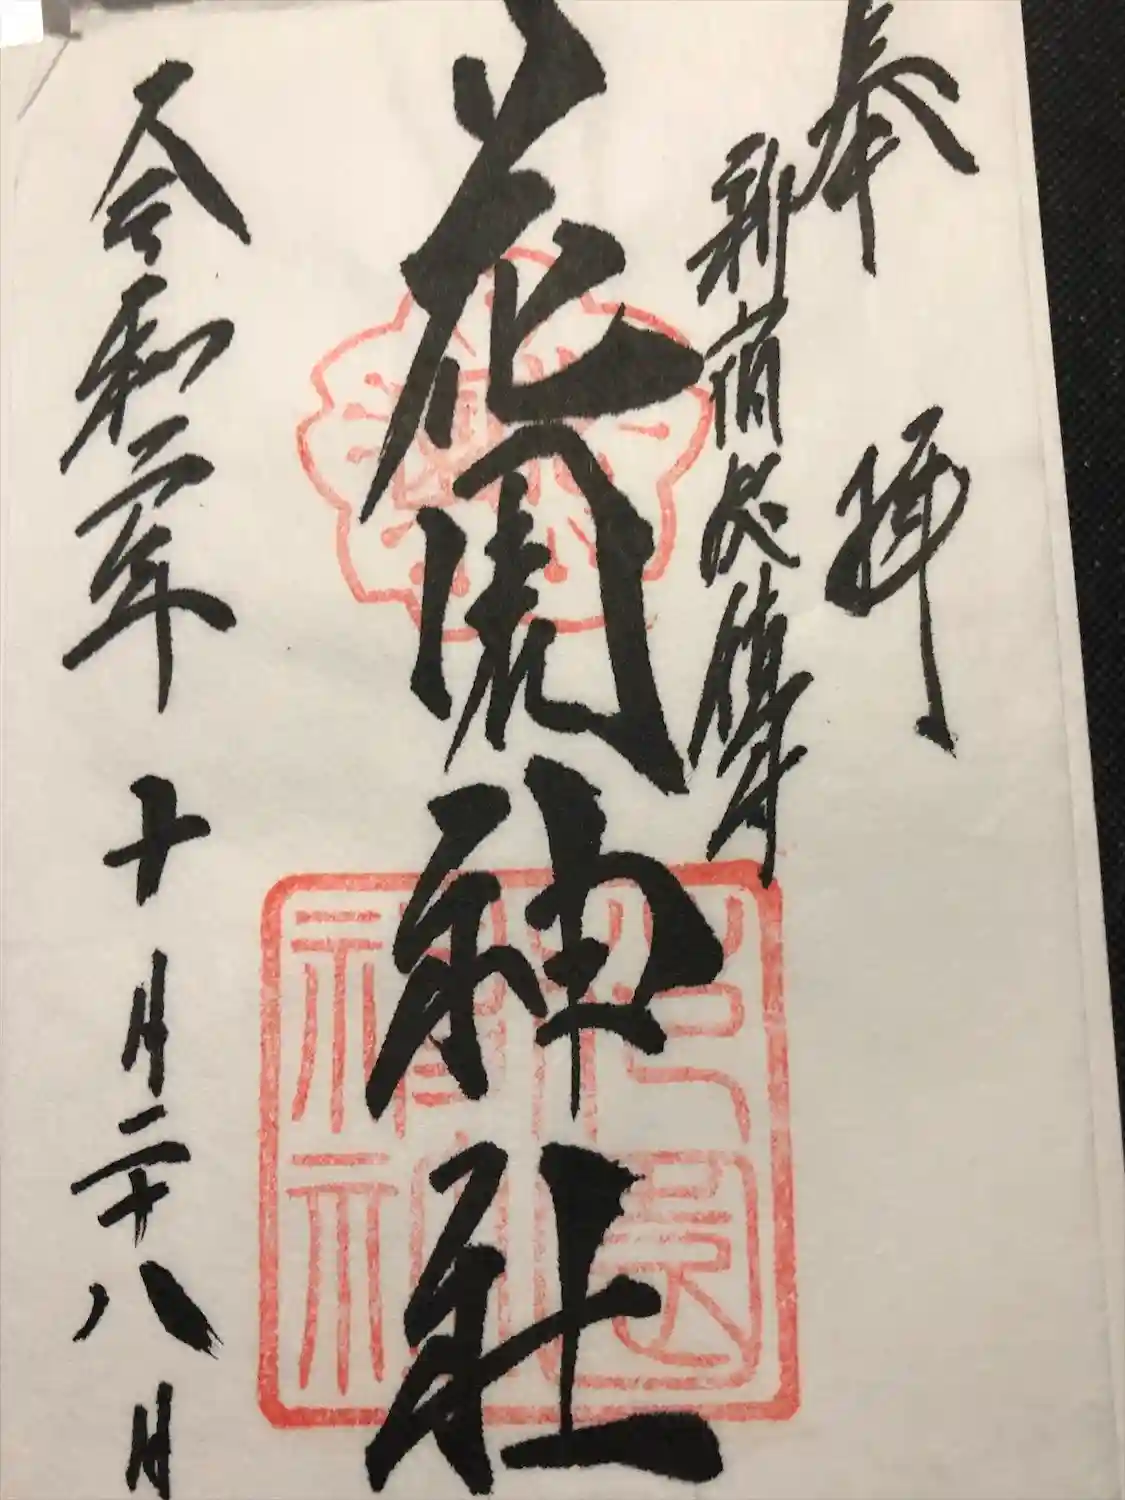 奉拝
新宿総鎮守
花園神社
令和二年 十月二十八日
花園神社